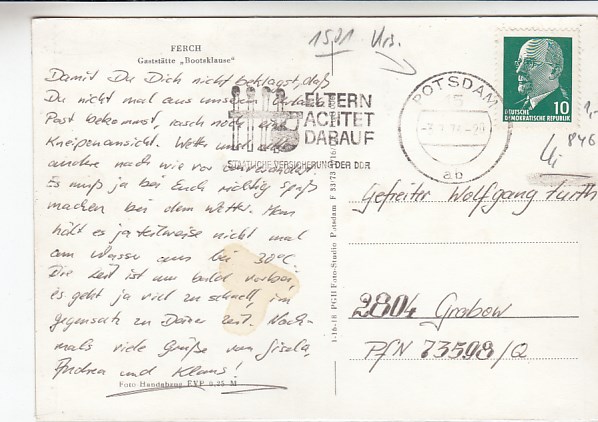 1521 Urs.
FERCH
Gaststätte „Bootsklause"
Damit Du Dich nicht beklagst, daß
Du nicht mal aus unserem Urlaub
Post bekommst, rasch noch eine
Kneipenansicht. Wetter
andere nach wie vor
Es muß ja bei Euch richtig Spaß
machen bei dem Wetter. Man
hält es ja teilweise nicht mal
am Wasser aus bei 30°C.
Die Zeit ist nun bald vorbei,
es geht ja viel zu schnell, im
Gegensatz zu Deiner Zeit. Noch-
mals viele Grüße von Gisela,
Andrea und Klaus!
Foto Handabzug EVP 0,25 M
ELTERN
ACHTET
DARAUF
STAATLICHE VERSICHERUNG DER DDR
POTSDAM
15
ab
DEUTSCHE
DEMOKRATISCHE REPUBLIK
10
1,-
846
1-16-18 PGH Foto-Studio Potsdam F 33/73
Gefreiter Wolfgang Furth
2804 Grabow
PFN 73598/Q